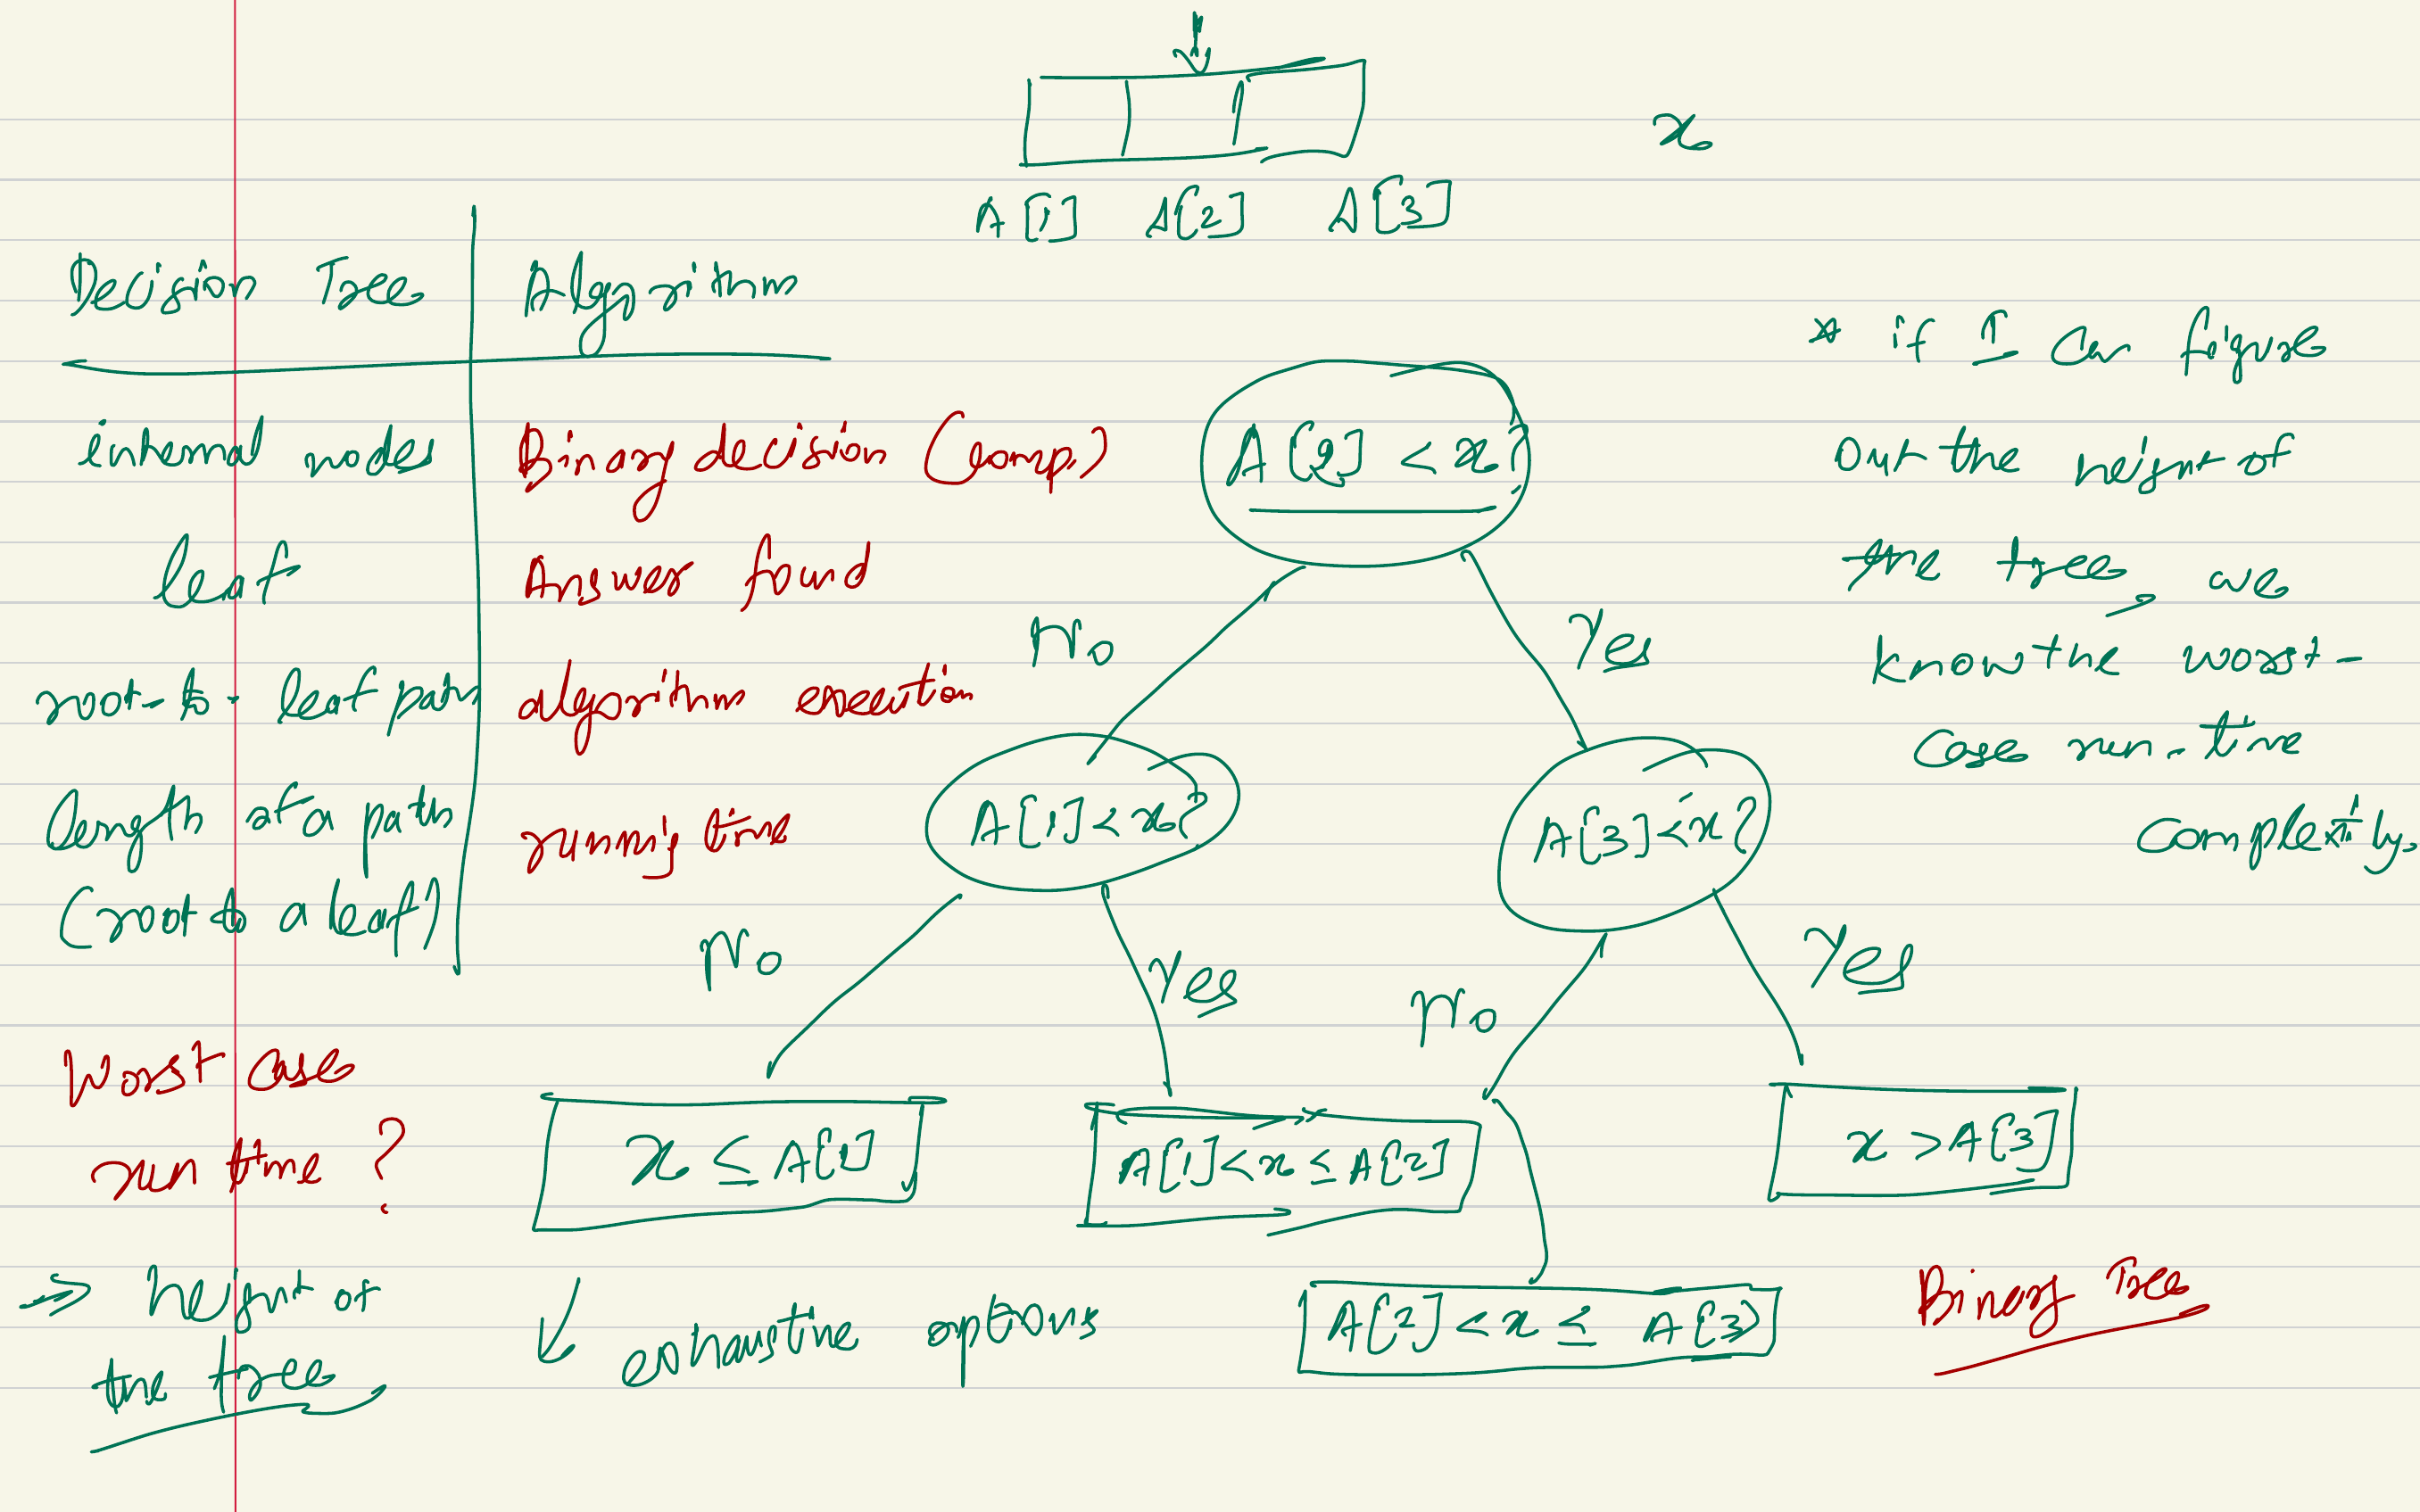 x
A[1] A[2] A[3]
Decision Tree Algorithm
internal nodes Binary decision (comp)
leaf Answer found
root-to-leaf path algorithm execution
length of a path running time
(root to a leaf)
Worst case
run time?
⇒ height of
the tree
A[2] < x?
No
Yes
A[1] < x?
A[3] < x?
No
Yes
No
Yes
x ≤ A[1]
A[1] < x ≤ A[2]
x > A[3]
A[2] < x ≤ A[3]
exhaustive options
Binary Tree
* if I can figure
out the height of
the tree, we
know the worst-
case run-time
complexity.